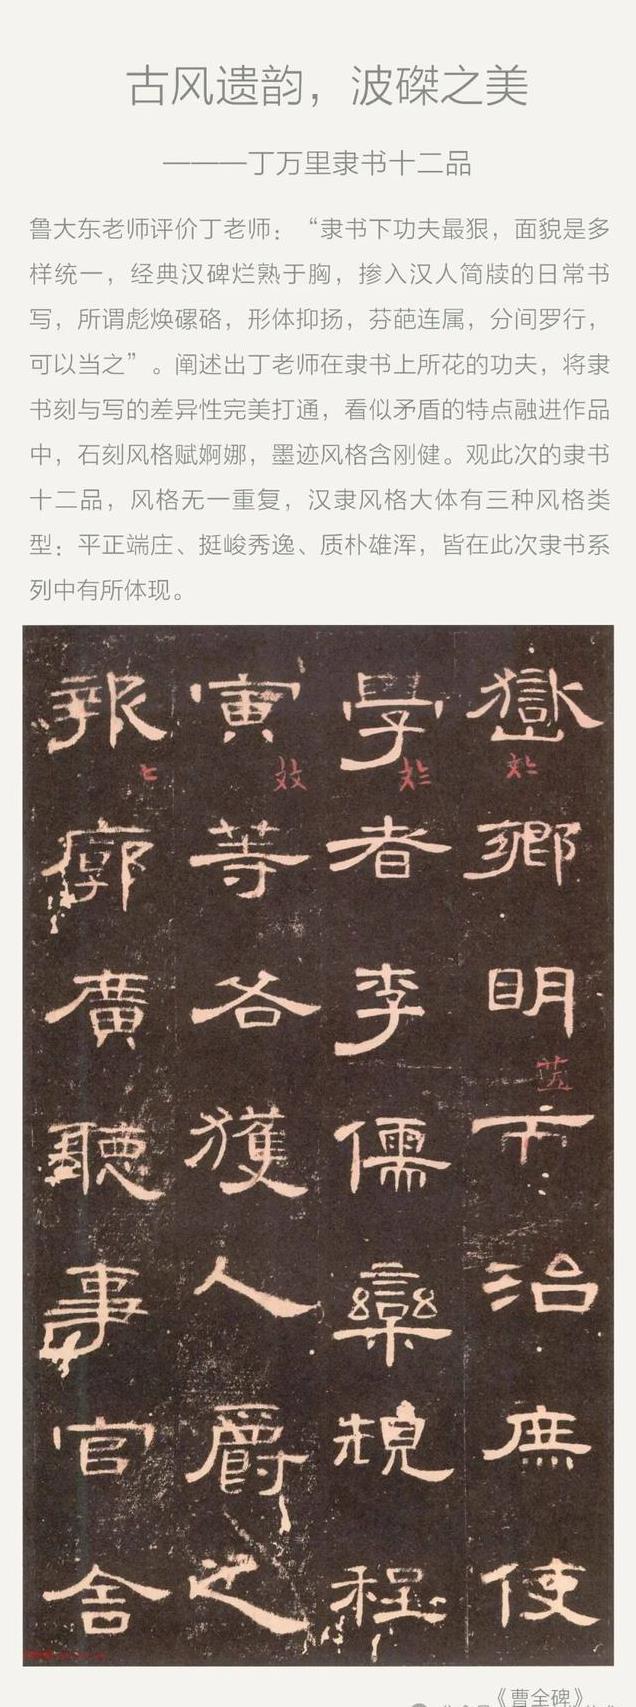 古风遗韵，波磔之美
———丁万里隶书十二品
鲁大东老师评价丁老师：“隶书下功夫最狠，面貌是多
样统一，经典汉碑烂熟于胸，掺入汉人简牍的日常书
写，所谓彪焕磥硌，形体抑扬，芬葩连属，分间罗行，
可以当之”。阐述出丁老师在隶书上所花的功夫，将隶
书刻与写的差异性完美打通，看似矛盾的特点融进作品
中，石刻风格赋婀娜，墨迹风格含刚健。观此次的隶书
十二品，风格无一重复，汉隶风格大体有三种风格类
型：平正端庄、挺峻秀逸、质朴雄浑，皆在此次隶书系
列中有所体现。
嶽鄉明而治庶使
學者李儒欒規程
寅等各獲人爵之
報廓廣聽事官舍
《曹全碑》